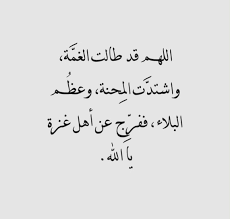 اللهم قد طالت الغمَّة،
واشتدَّت المِحنة، وعظُم
البلاء، ففرِّج عن أهل غزة
يا الله.